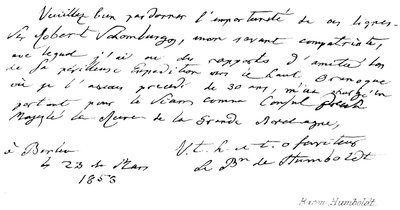 Veuillez bien pardonner l'importunité de ces lignes.
Sir Robert Schomburgk, mon savant compatriote,
avec lequel j'ai eu des rapports d'amitié lors
de sa périlleuse Expedition vers le haut
où je l'avais précédé de 30 ans, m'a chargé en
partant pour le Siam comme Consul
Majesté la Reine de la Grande Bretagne,
à Berlin
le 23 Mars
1853
V. t. h. et t. o
Le Bn de Humboldt
Baron Humboldt.